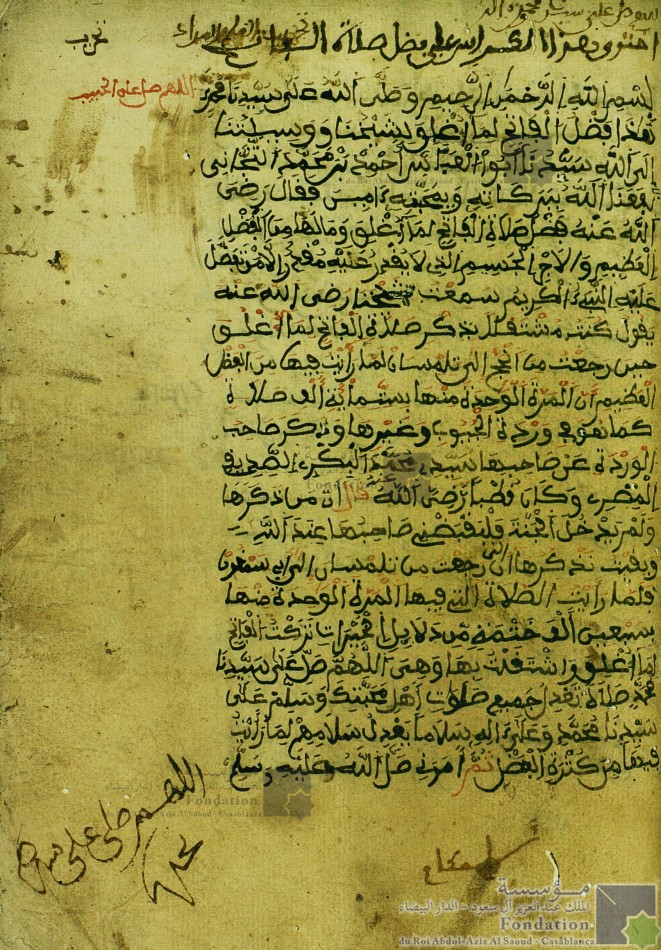 احتوى هذا الكراس على فضل صلاة
اللهم صل على الحبيب
بسم الله الرحمن الرحيم وصلى الله على سيدنا محمد
هذا فضل الفاتح لما أغلق لشيخنا ووسيلتنا
إلى الله سيدنا أبو العباس أحمد بن محمد التجاني
نفعنا الله ببركاته وبمحبته ءامين فقال رضى
الله عنه فضل صلاة الفاتح لما أغلق وما لها من الفضل
العظيم والأجر الجسيم الذى لا يقدر عليه مقدر إلا من تفضل
عليه النبى الكريم سمعت شيخنا رضى الله عنه
يقول كنت مشتغلا بذكر صلاة الفاتح لما أغلق
حين رجعت من الحج الى تلمسان لما رأيت فيها من الفضل
العظيم أن المرة الوحدة منها بستماية ألف صلاة
كما هو فى وردة الجيوب وغيرها وذكر صاحب
الوردة عن صاحبها سيدى محمد البكرى الصديقى
المصرى وكان قطبا رضى الله قال ان من ذكرها
ولم يدخل الجنة فليقبض صاحبها عند الله
وبقيت نذكرها الى رجعت من تلمسان الى ابى سمغون
فلما رأيت الصلاة التى فيها المرة الوحدة منها
بسبعين ألف ختمة من دلايل الخيرات تركت الفاتح
لما أغلق واشتغلت بها وهى اللهم صل على سيدنا
محمد صلاة تعدل جميع صلوات أهل محبتك وسلم على
سيدنا محمد وعلى اله سلاما يعدل سلامهم لما رأيت
فيها من كثرة الفضل ثم أمرنى صلى الله عليه وسلم
اللهم صلى على
مؤسسة
الملك عبد العزيز آل سعود - الدار البيضاء
Fondation
du Roi Abdul-Aziz Al Saoud - Casablanca